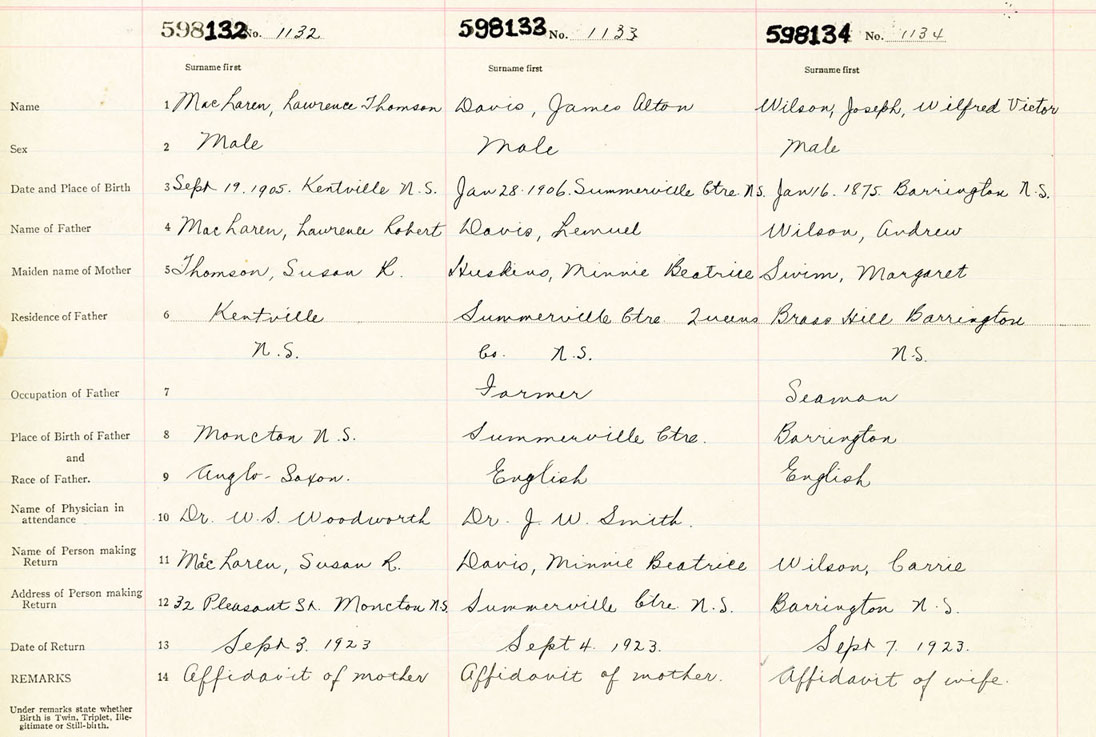 598132 No. 1132 598133 No. 1133 598134 No. 1134
Surname first Surname first Surname first
Name 1 MacLaren, Lawrence Thomson Davis, James Alton Wilson, Joseph, Wilfred Victor
Sex 2 Male Male Male
Date and Place of Birth 3 Sept 19. 1905. Kentville N.S. Jan 28. 1906. Summerville Ctre. N.S. Jan 16. 1875. Barrington N.S.
Name of Father 4 MacLaren, Lawrence Robert Davis, Lemuel Wilson, Andrew
Maiden name of Mother 5 Thomson, Susan R. Huskins, Minnie Beatrice Swim, Margaret
Residence of Father 6 Kentville Summerville Ctre. Queens Brass Hill Barrington
N.S. Co. N.S. N.S.
Occupation of Father 7 Farmer Seaman
Place of Birth of Father 8 Moncton N.S. Summerville Ctre. Barrington
and
Race of Father. 9 Anglo-Saxon. English English
Name of Physician in
attendance 10 Dr. W.S. Woodworth Dr. J. W. Smith.
Name of Person making
Return 11 MacLaren, Susan R. Davis, Minnie Beatrice Wilson, Carrie
Address of Person making
Return 12 32 Pleasant St. Moncton N.S. Summerville Ctre N.S. Barrington N.S.
Date of Return 13 Sept 3. 1923 Sept 4. 1923. Sept 7. 1923.
REMARKS 14 Affidavit of mother Affidavit of mother. Affidavit of wife.
Under remarks state whether
Birth is Twin, Triplet, Ille-
gitimate or Still-birth.